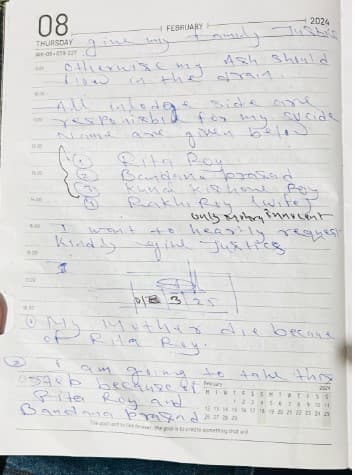 08
THURSDAY
FEBRUARY
2024
give my family Justice
otherwise my Ash should
flow in the drain.
All inlodge side are
responisible for my sucide
Name are given below
① Rita Roy
② Bandana prasad
③ Kishore Roy
④ Rakhi Roy (wife)
only innocent
I want to hearily request
Kindly give Justice
3 25
① My Mother die because
of Rita Roy.
② I am going to take this
step because of
Rita Roy and
Bandana prasad
February
2024
M T W T F S S M T W T F S S
1 2 3 4 5 6 7 8 9 10 11
12 13 14 15 16 17 18 19 20 21 22 23 24 25
26 27 28 29